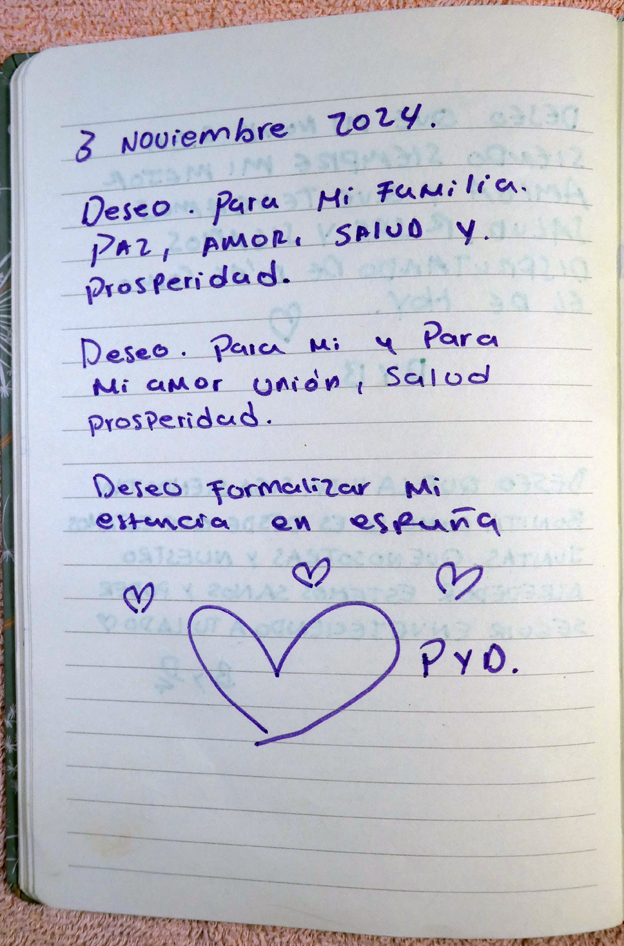 3 Noviembre 2024.
Deseo. Para Mi Familia.
PAZ, AMOR, SALUD Y.
Prosperidad.
Deseo. Para Mi y Para
Mi amor unión, Salud
prosperidad.
Deseo Formalizar Mi
estancia en españa
PYD.